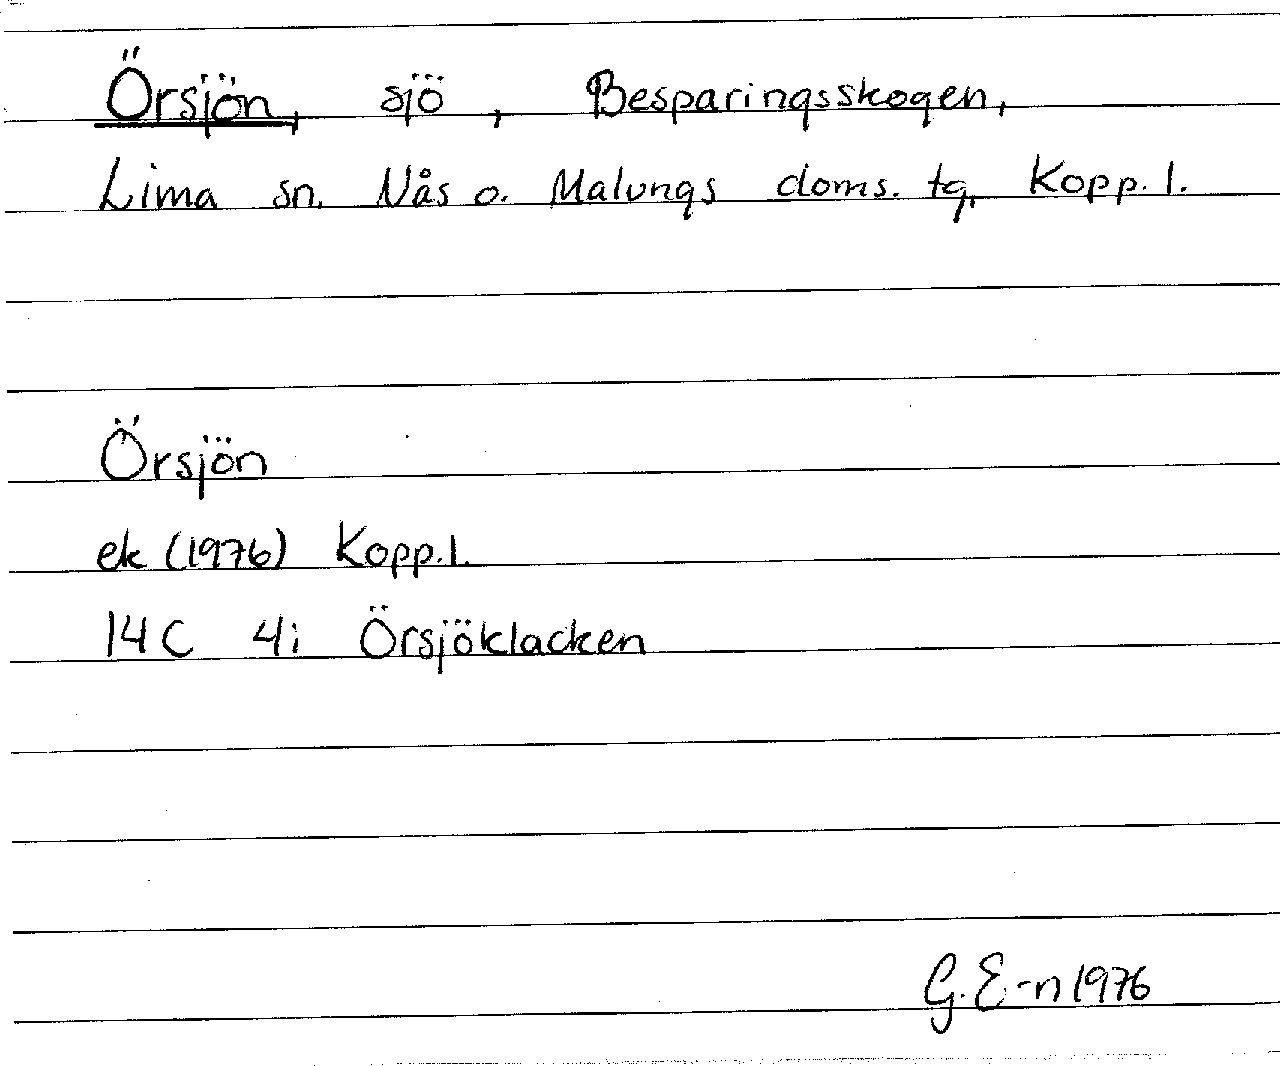 Örsjön, sjö, Besparingsskogen,
Lima sn. Nås o. Malungs doms. tg, Kopp. l.
Örsjön
ek (1976) Kopp.l.
14C 4i Örsjöklacken
G. E-n 1976